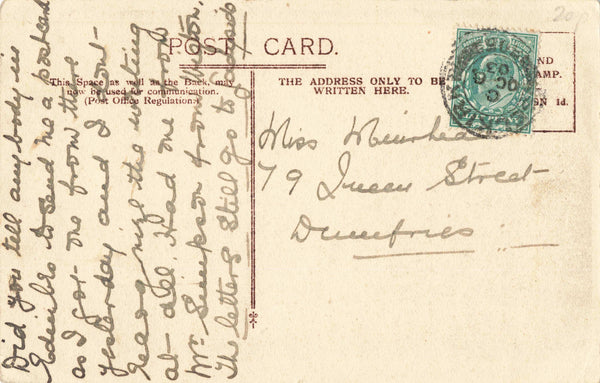 20p
POST CARD.
This Space as well as the Back, may
now be used for communication.
(Post Office Regulation.)
THE ADDRESS ONLY TO BE
WRITTEN HERE.
ND
AMP.
N 1d.
Miss Muirhead
79 Queen Street
Dumfries
Did you tell anybody in
Edinbro to send me a postcard
as I got one from there
yesterday and I cant
recognize the writing
at all. Had one from
Mr. Simpson from
The letters still go to